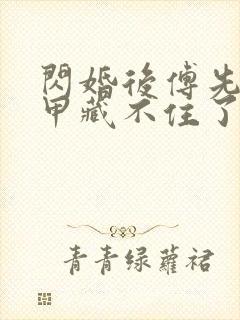 閃婚後傅先
甲藏不住了
青青绿蘿裙